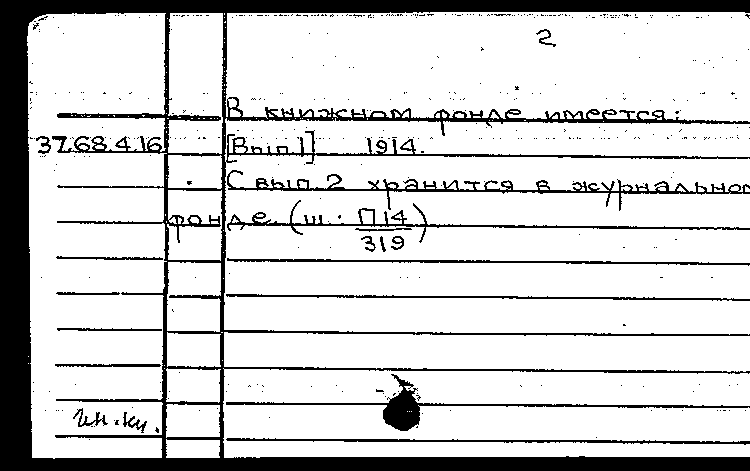 2
В книжном фонде имеется:
37.68.4.16 [Вып.1] 1914.
С вып. 2 хранится в журнальном
фонде. (ш. П14/319)